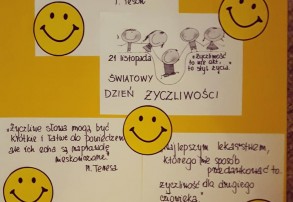 T. Tesoń
21 listopada
"Życzliwość
to nie akt.
to styl życia."
ŚWIATOWY
DZIEŃ ŻYCZLIWOŚCI
"Życzliwe słowa mogą być
krótkie i łatwe do powiedzenia,
ale ich echa są naprawdę
nieskończone."
M. Teresa
Najlepszym lekarstwem,
którego nie sposób
przedawkować to
życzliwość dla drugiego
człowieka."